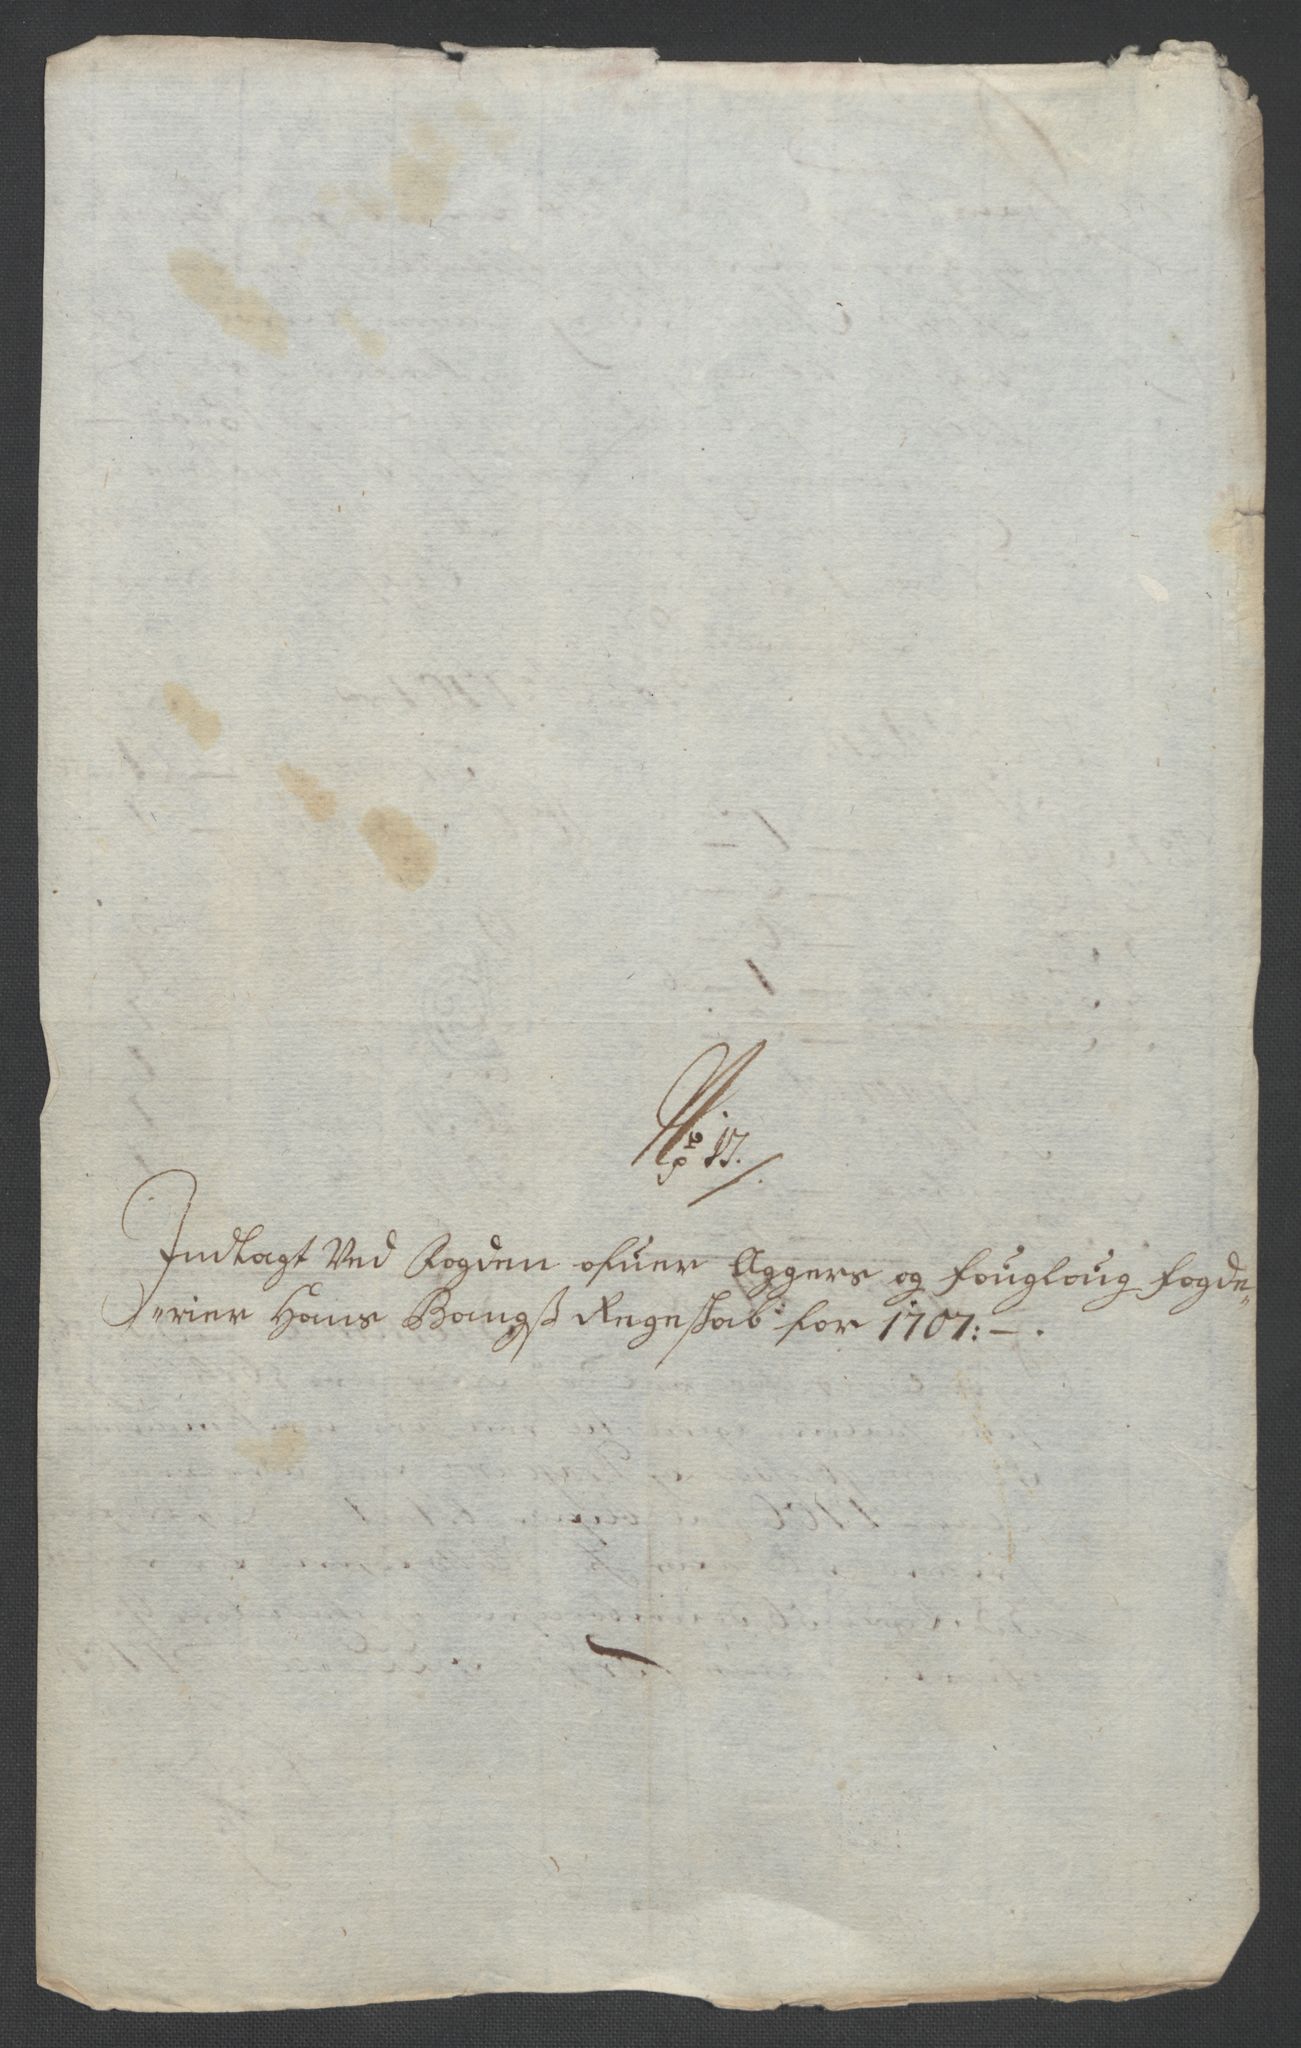 No 17.
Indlagt Ved Fogden ofuer Aggers og fougloug fogde-
-rier Hans Bangß Regeskab for 1707:-.